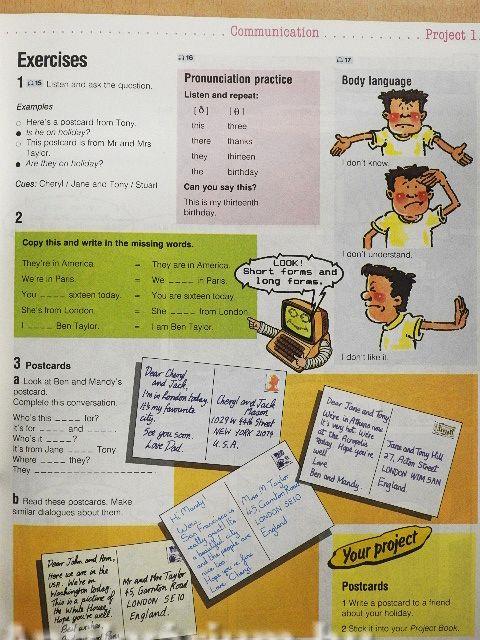 Communication
Project 1
Exercises
1 15 Listen and ask the question.
Examples
Here's a postcard from Tony.
Is he on holiday?
This postcard is from Mr and Mrs
Taylor.
Are they on holiday?
Cues: Cheryl / Jane and Tony / Stuart
16
Pronunciation practice
Listen and repeat:
[ð] [θ]
this three
there thanks
they thirteen
the birthday
Can you say this?
This is my thirteenth
birthday.
17
Body language
I don't know.
I don't understand.
I don't like it.
2
Copy this and write in the missing words.
They're in America. = They are in America.
We're in Paris. = We ____ in Paris.
You ____ sixteen today. = You are sixteen today.
She's from London. = She ____ from London.
I ____ Ben Taylor. = I am Ben Taylor.
LOOK!
Short forms and
long forms.
3 Postcards
a Look at Ben and Mandy's
postcard.
Complete this conversation.
Who's this ____ for?
It's for ____ and ____.
Who's it ____?
It's from Jane ____ Tony
Where ____ they?
They ____
b Read these postcards. Make
similar dialogues about them.
Dear Cheryl
and Jack,
I'm in London today.
It's my favourite
city.
See you soon.
Love Dad.
Cheryl and Jack
Mason
1029 W 44th Street
NEW YORK 21074
U.S.A.
Dear Jane and Tony,
We're in Athens now.
It's very hot. We're
at the Acropolis
today. Hope you're
well.
Love
Ben and Mandy.
Jane and Tony Hill
27, Acton Street
LONDON W1M 5AN
England
Hi Mandy!
Wow!
San Francisco is
really great! It's
a beautiful city
and the people are
nice too.
Hope you're fine
Love Cheryl
Miss M Taylor
45 Garnton Road
LONDON SE10
England
Dear John and Ann,
Here we are in the
USA. We're in
Washington today.
This is a picture of
the White House.
Hope you're well.
Best wishes
Mr and Mrs Taylor
45, Garnton Road
LONDON SE10
England.
Your project
Postcards
1 Write a postcard to a friend
about your holiday.
2 Stick it into your Project Book.